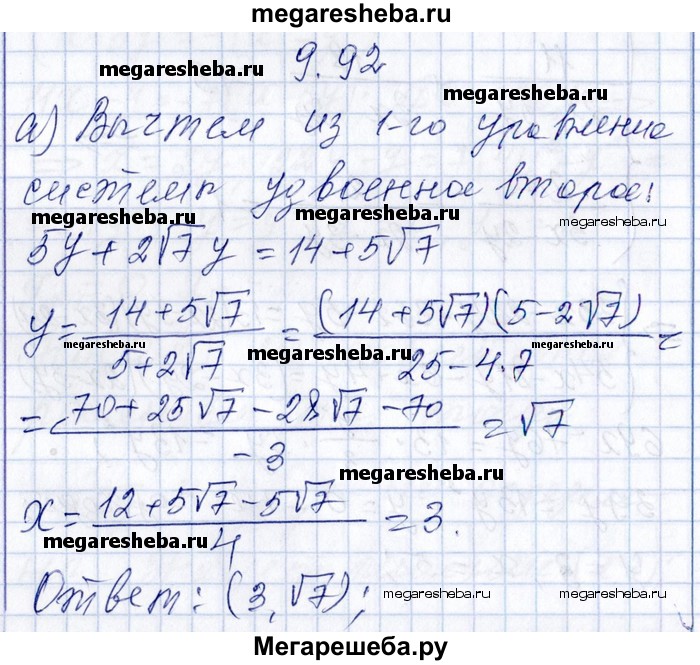 megaresheba.ru
9.92
megaresheba.ru
megaresheba.ru
а) Вычтем из 1-го уравнение
системы удвоенное второе:
megaresheba.ru
megaresheba.ru
5y + 2√7 y = 14 + 5√7
y = (14 + 5√7)/(5 + 2√7) = ((14 + 5√7)(5 - 2√7))/(25 - 4·7) =
megaresheba.ru
megaresheba.ru
megaresheba.ru
= (70 + 25√7 - 28√7 - 70)/(-3) = √7
megaresheba.ru
x = (12 + 5√7 - 5√7)/4 = 3.
megaresheba.ru
Ответ: (3, √7);
megaresheba.ru
megaresheba.ru
Мегарешеба.ру